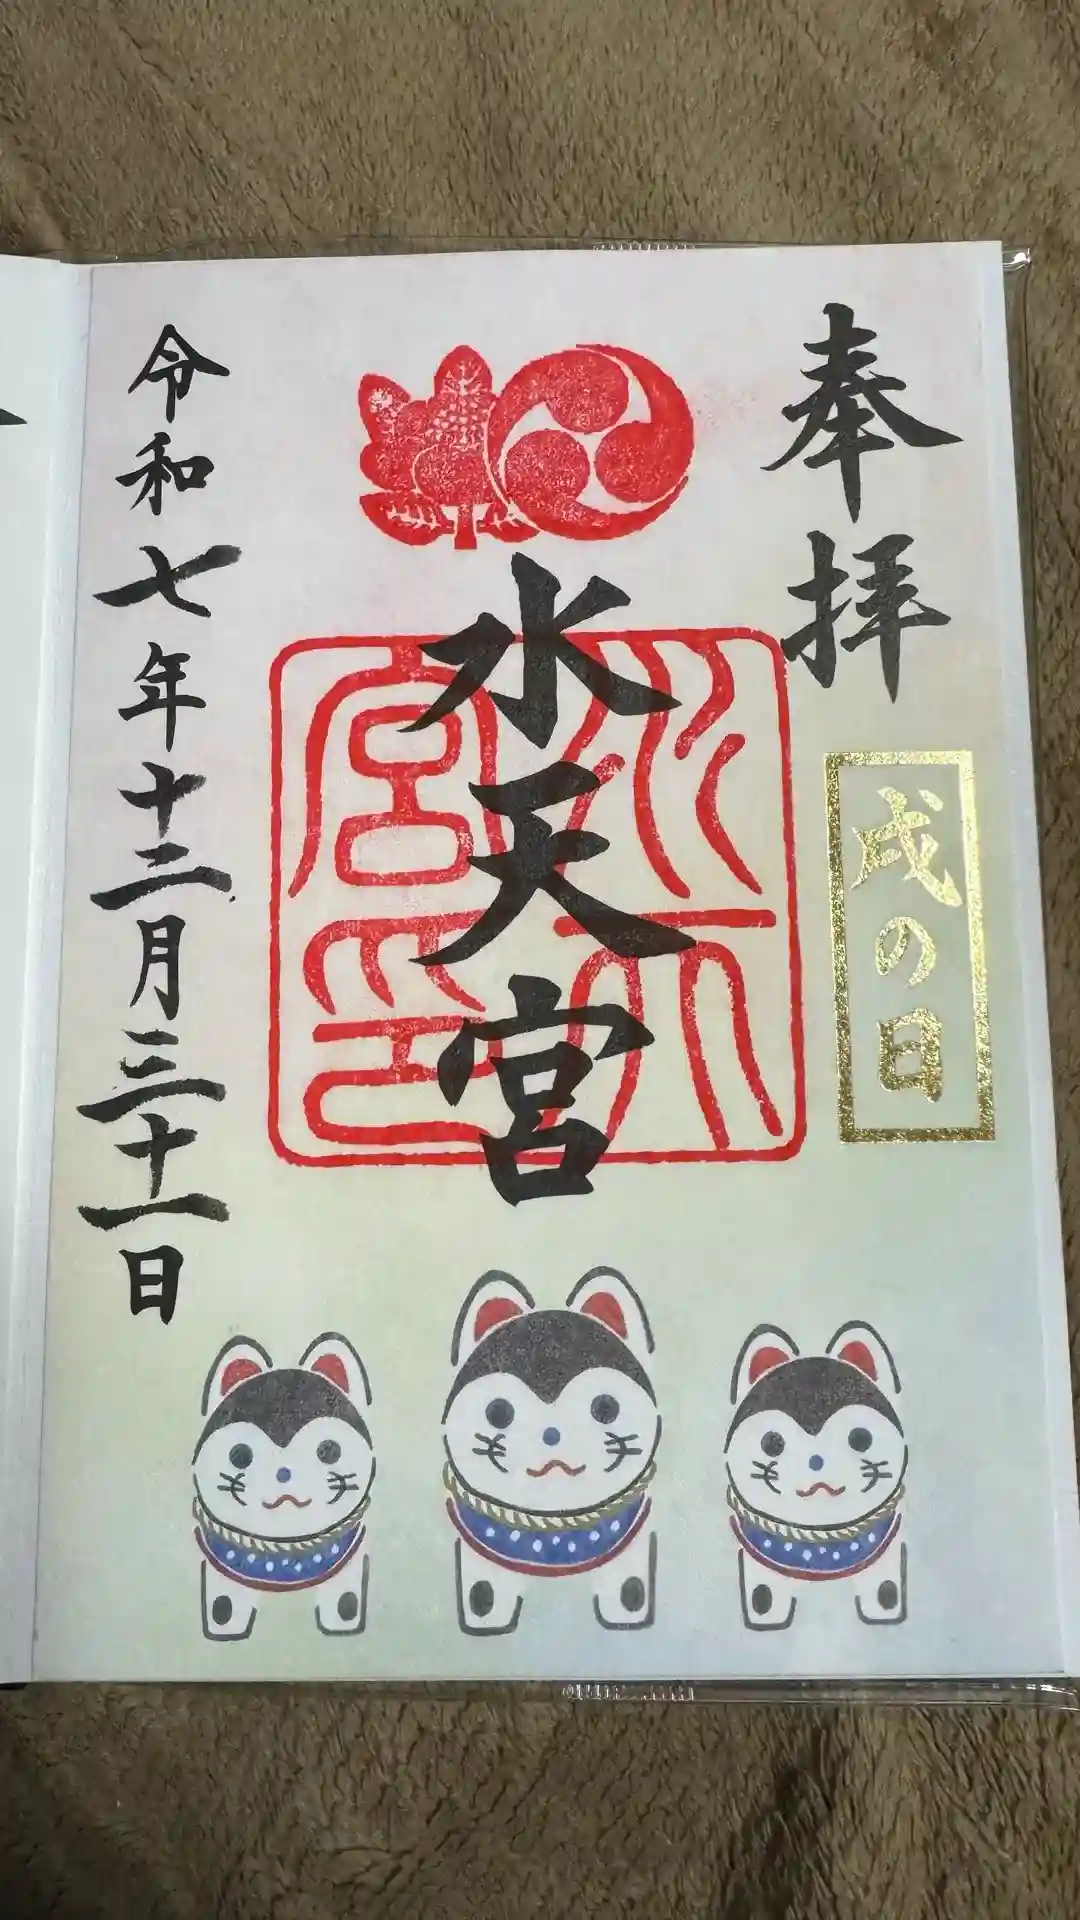 奉拝
戌の日
水天宮
水天宮印
令和七年十二月三十一日